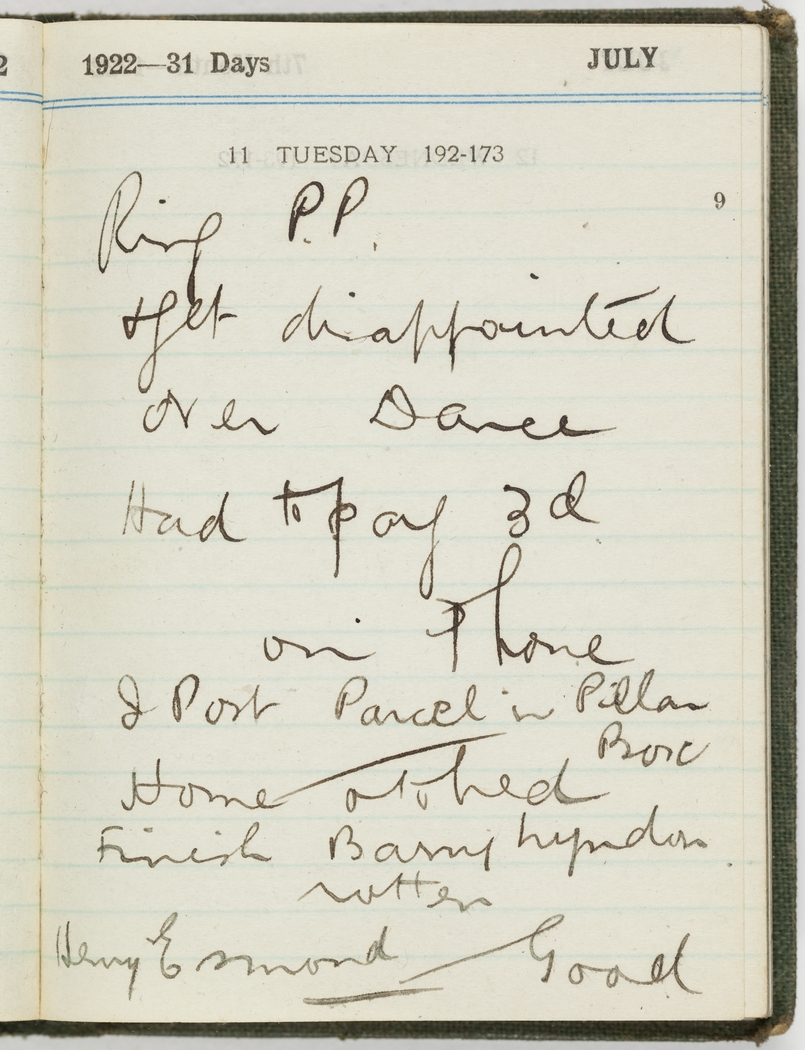 2
1922—31 Days JULY
11 TUESDAY 192-173
9
Ring P.P.
+ get disappointed
over Dance
Had to pay 3d
on Phone
I Post Parcel in Pillar
Box
Home to bed
Finish Barry Lyndon
rotten
Henry Esmond — Good